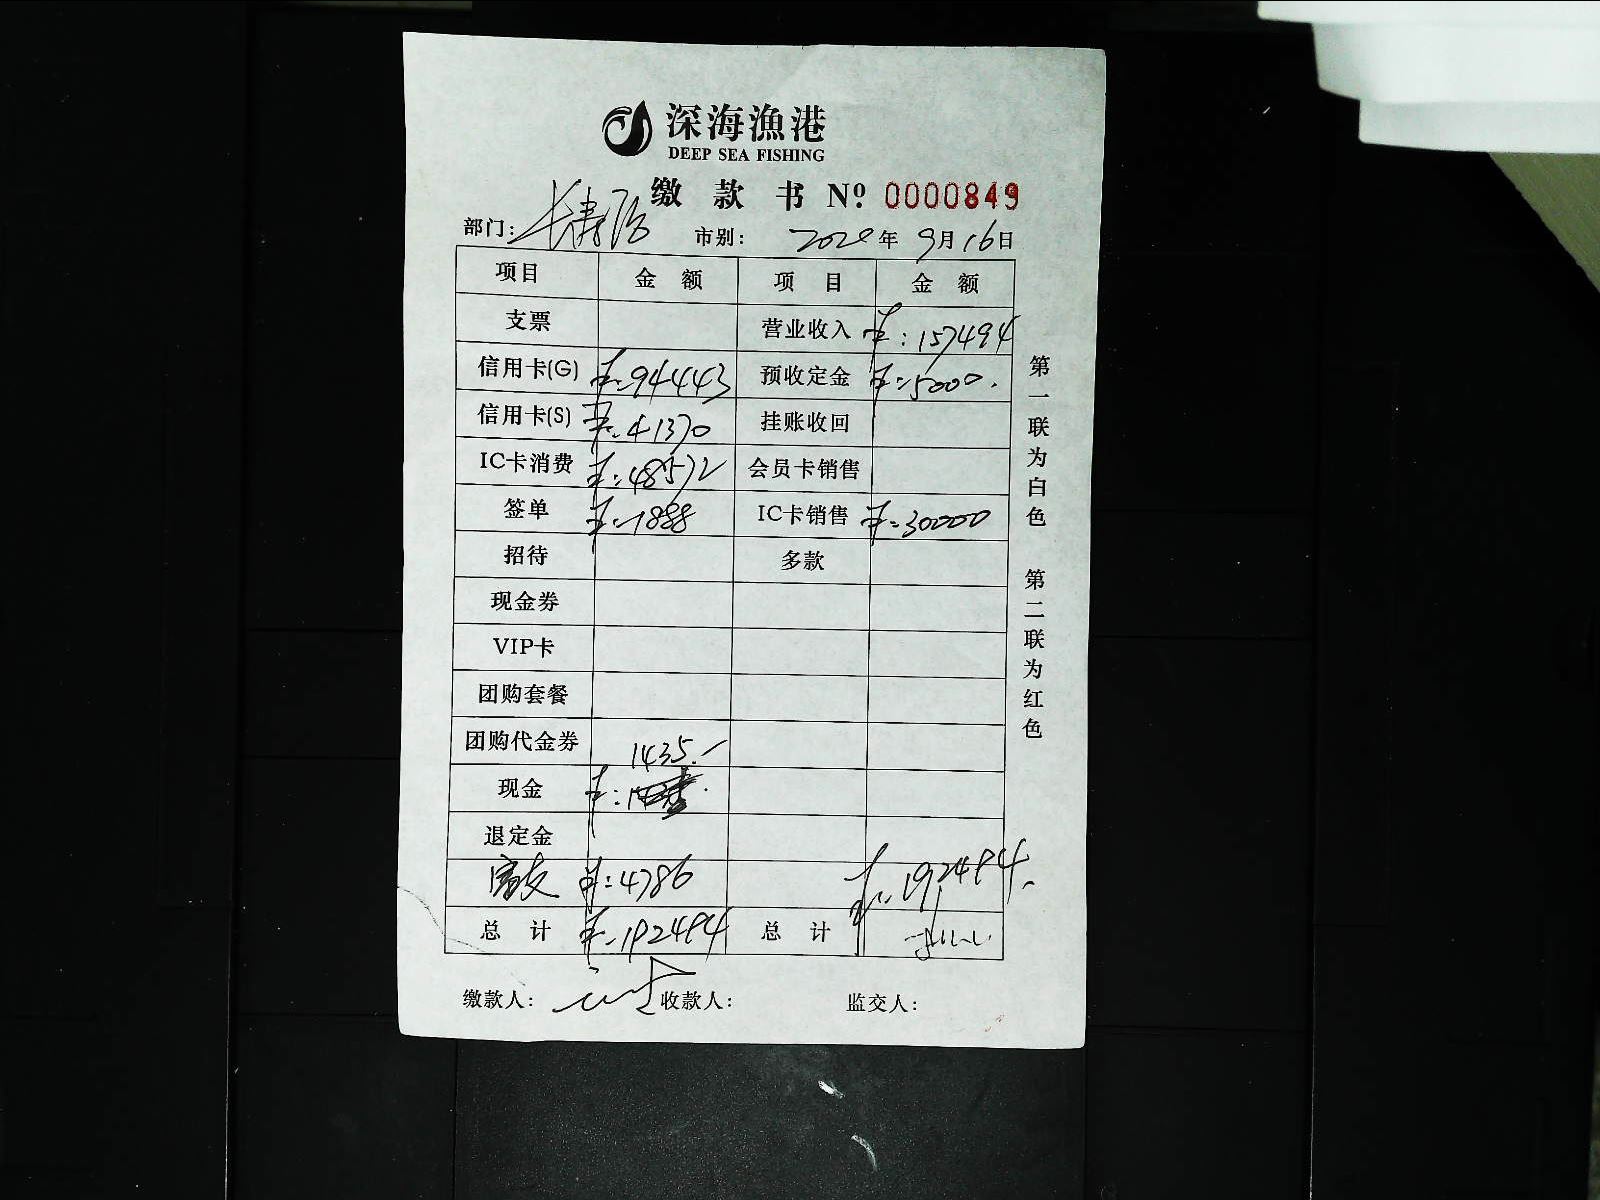 深海漁港
DEEP SEA FISHING
缴款书 Nº 0000849
部门: 长寿路 市别: 2020年9月16日
项目 金额 项目 金额
支票 营业收入 ¥:157494
信用卡(G) ¥:94443 预收定金 ¥:5000.
信用卡(S) ¥:41370 挂账收回
IC卡消费 ¥:48572 会员卡销售
签单 ¥:1888 IC卡销售 ¥:30000
招待 多款
现金券
VIP卡
团购套餐
团购代金券 1435.-
现金 ¥:
退定金
¥:4786 ¥:192494.
总计 ¥:192494 总计
缴款人: 收款人: 监交人:
第一联为白色 第二联为红色